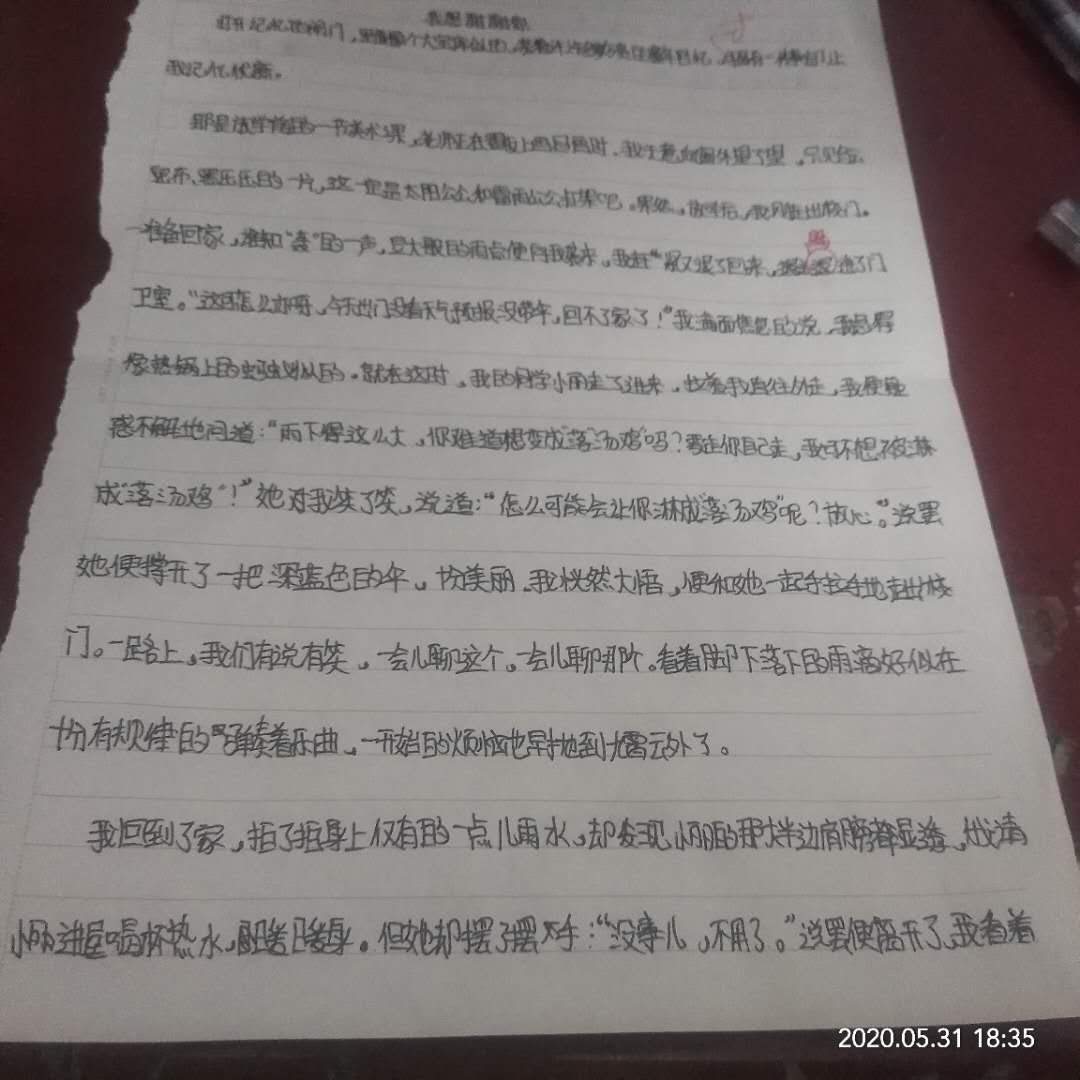 我想谢谢你
打开记忆的闸门，里面像个大宝库似的，装着许许多多的童年回忆，有一件事至今让
我记忆犹新。
那是放学前的一节美术课，老师正在黑板上画画时，我无意向窗外望了望，只见乌云
密布，黑压压的一片，这一定是太阳公公和雷雨公公打架吧。果然，放学后，我刚走出校门。
准备回家，谁知“轰”的一声，豆大般的雨点便向我袭来，我赶紧又退了回来，跑进了门
卫室。“这可怎么办呀，今天出门没看天气预报没带伞，回不了家了！”我满面愁容的说，我急得
像热锅上的蚂蚁似的。就在这时，我的同学小雨走了进来，拉着我直往外走，我便疑
惑不解地问道：“雨下得这么大，你难道想变成“落汤鸡”吗？要走你自己走，我可不想被淋
成“落汤鸡”！”她对我笑了笑，说道：“怎么可能会让你淋成“落汤鸡”呢？放心。”说罢
她便撑开了一把深蓝色的伞，十分美丽。我恍然大悟，便和她一起手拉手地走出校
门。一路上，我们有说有笑，一会儿聊这个，一会儿聊那个。看着脚下落下的雨滴好似在
十分有规律的弹奏着乐曲，一开始的烦恼也早抛到九霄云外了。
我回到了家，拍了拍身上仅有的一点儿雨水，却发现小雨的那大半边肩膀都湿透，我请
小雨进屋喝杯热水，暖暖身。但她却摆了摆手：“没事儿，不用了。”说罢便离开了，我看着
2020.05.31 18:35